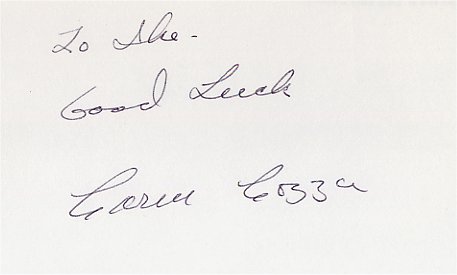 To Ike-
Good Luck
Carm Cozza